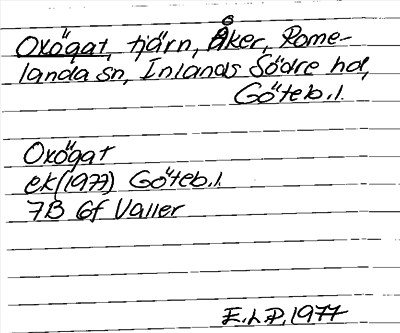 Oxögat, tjärn, Åker, Rome-
landa sn, Inlands Södre hd,
Göteb.l.
Oxögat
ek(1977) Göteb.l.
7B 6f Valler
E.L.P. 1977